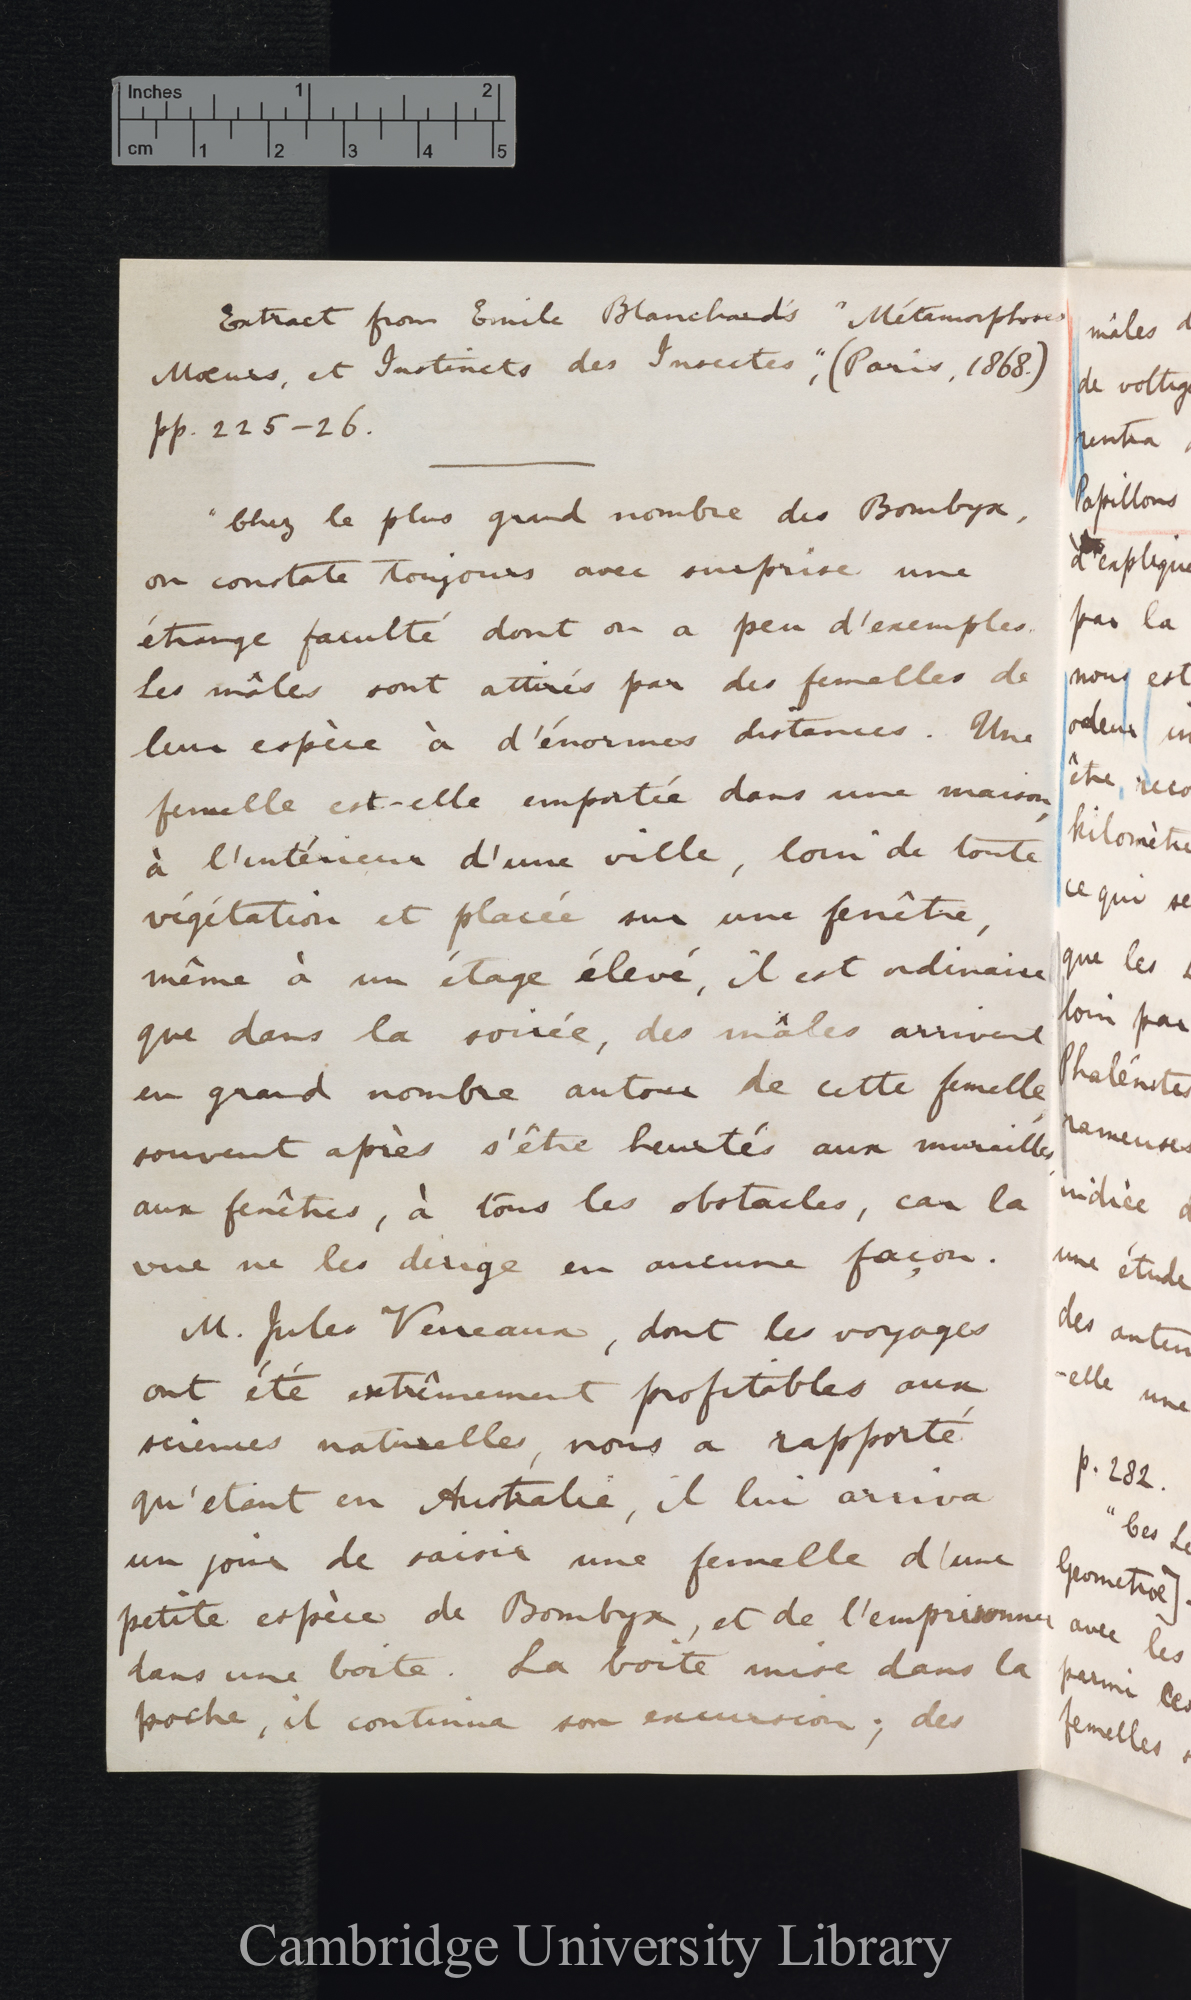 Inches 1 2
cm 1 2 3 4 5
Extract from Emile Blanchard's "Métamorphoses
Mœurs, et Instincts des Insectes", (Paris, 1868.)
pp. 225-26.
"Chez le plus grand nombre des Bombyx,
on constate toujours avec surprise une
étrange faculté dont on a peu d'exemples.
Les mâles sont attirés par des femelles de
leur espèce à d'énormes distances. Une
femelle est-elle emportée dans une maison,
à l'intérieur d'une ville, loin de toute
végétation et placée sur une fenêtre,
même à un étage élevé, il est ordinaire
que dans la soirée, des mâles arrivent
en grand nombre autour de cette femelle,
souvent après s'être heurtés aux murailles,
aux fenêtres, à tous les obstacles, car la
vue ne les dirige en aucune façon.
M. Jules Verreaux, dont les voyages
ont été extrêmement profitables aux
sciences naturelles, nous a rapporté
qu'etant en Australie, il lui arriva
un jour de saisir une femelle d'une
petite espèce de Bombyx, et de l'emprisonner
dans une boite. La boîte mise dans la
poche, il continua son excursion; des
mâles d
de voltig
rentra
Papillons
d'explique
par la
nous est
odeur in
être reco
kilomètre
ce qui se
que les
loin par
Phalénites
rameuses
indice d
une étude
des anten
-elle une
p. 282.
"Ces Le
Geometræ]
avec les
parmi ces
femelles s
Cambridge University Library